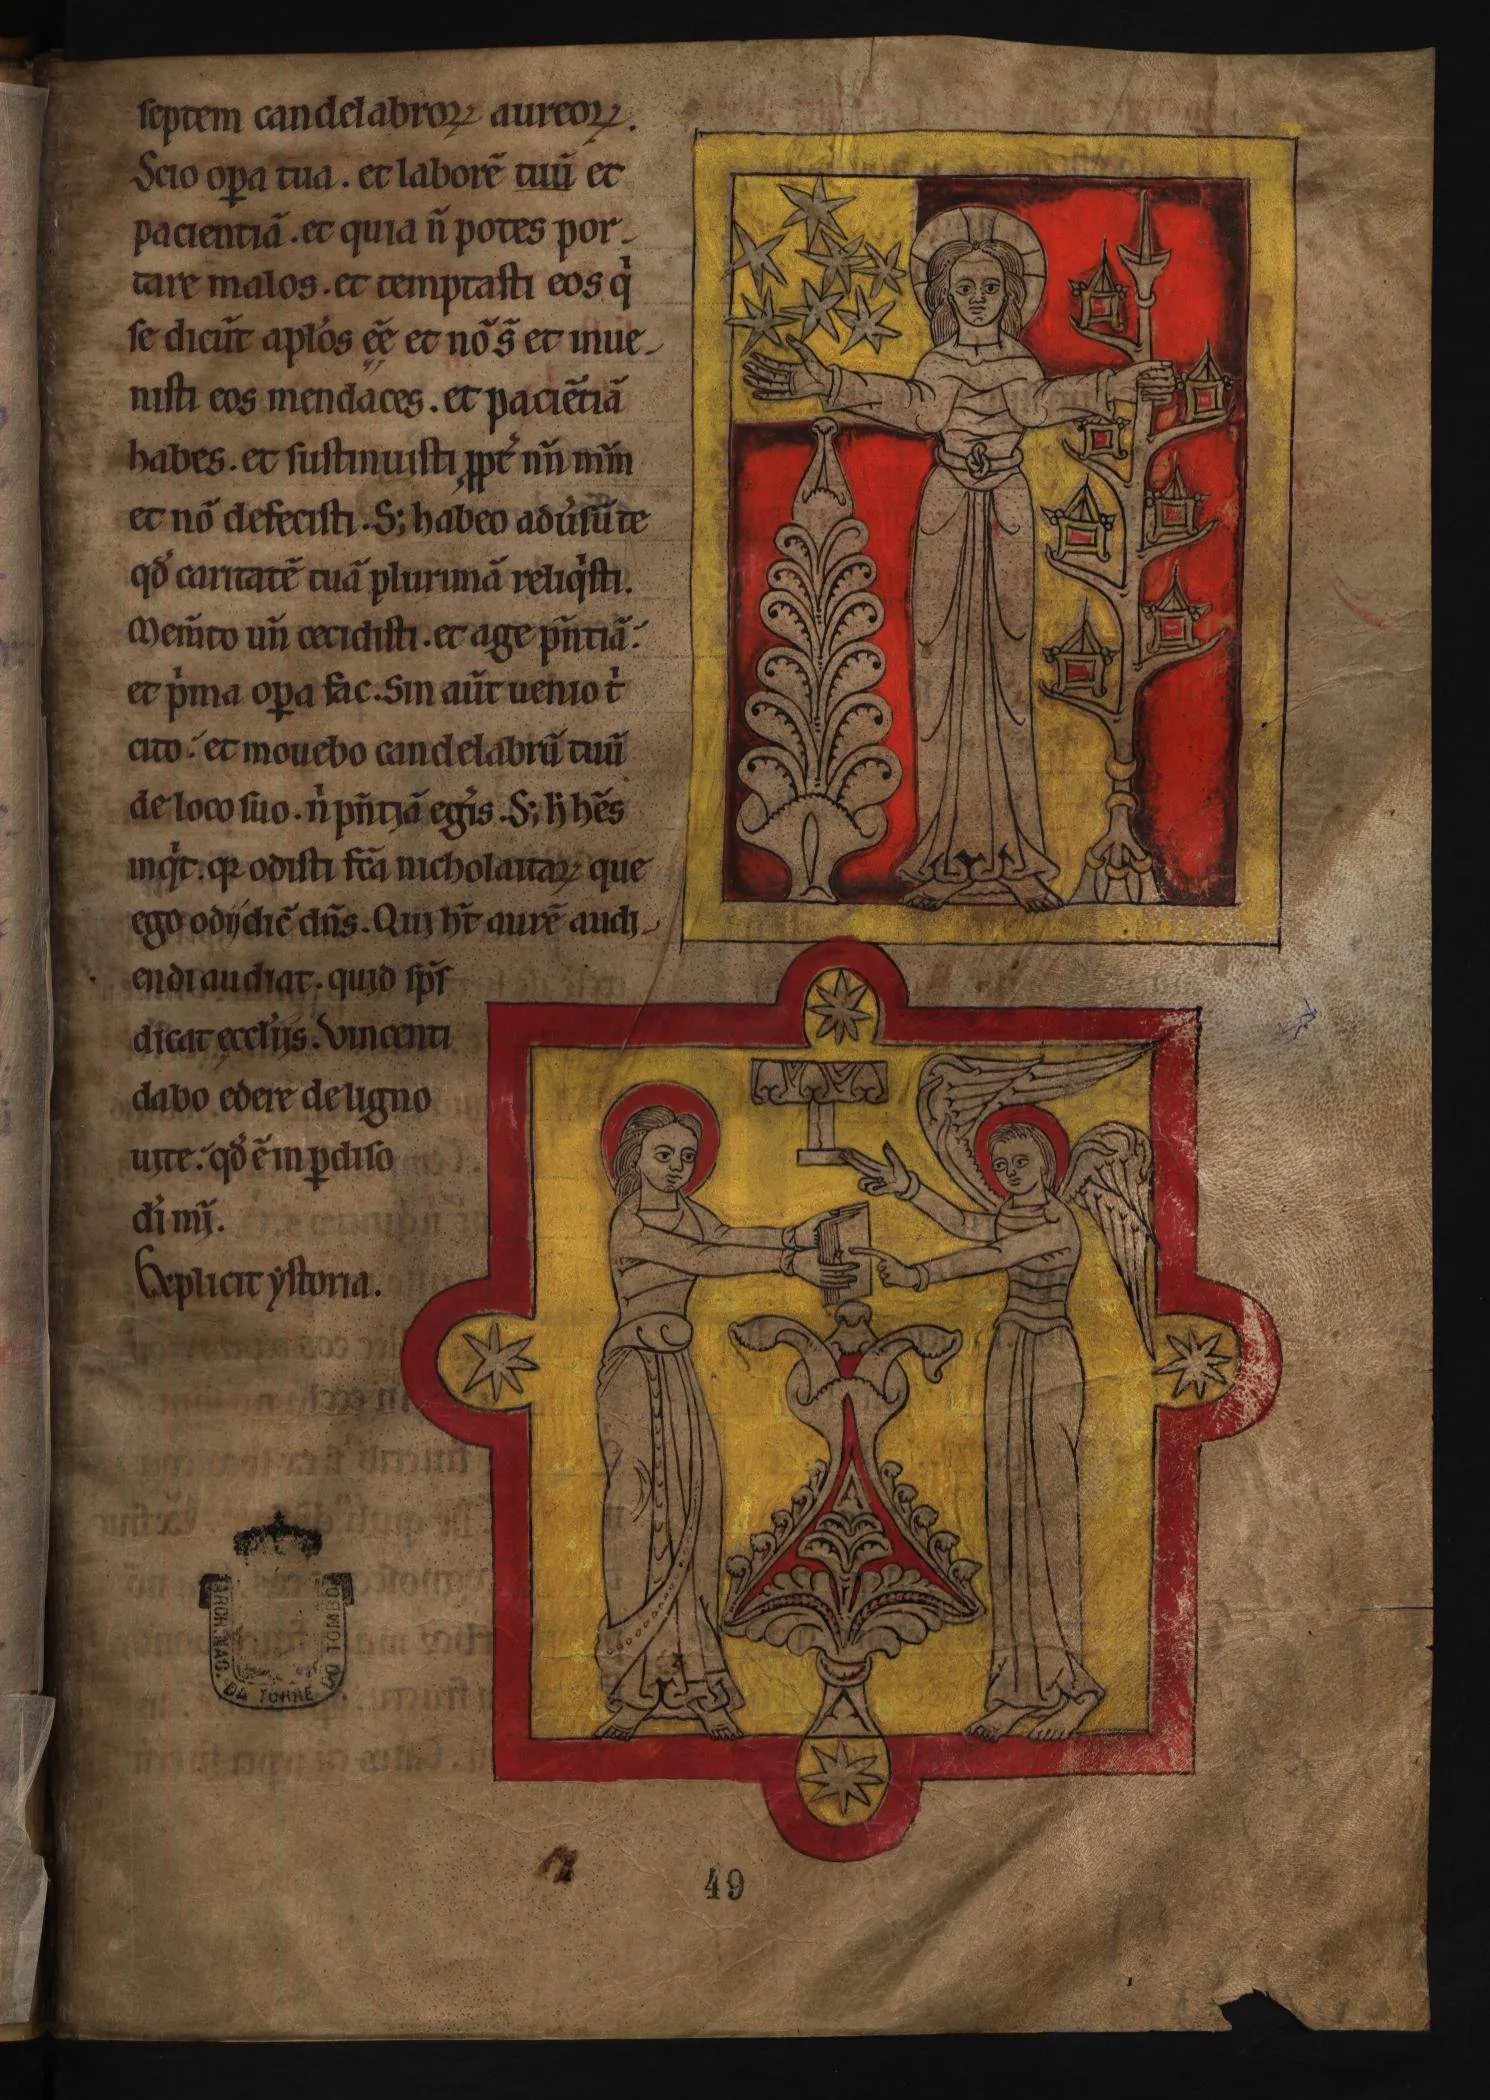 septem candelabroꝝ aureoꝝ.
Scio oꝑa tua. et laborẽ tuũ et
pacientiã. et quia ñ potes por-
tare malos. et temptasti eos q̇
se dicũt aplos ee̅ et nõ s̃ et inue-
nisti eos mendaces. et paciẽtiã
habes. et sustinuisti ꝓpt̾ nñ mm̃
et nõ defecisti. S; habeo adu̾sũ te
qd̾ caritatẽ tuã plurimã reliq̇sti.
Mem̃to uñ cecidisti. et age pñtiã:
et ṗma oꝑa fac. Sin aũt uenio ṫ
cito: et mouebo candelabrũ tuũ
de loco suo. ṅ pñtiã eg̾is. S; h̾ hẽs
inq̇t. qꝛ odisti fc̃ã nicholaitaꝝ que
ego odij dic̃ dñs. Qui hт̃ aurẽ audi-
endi audiat. quid sp̃s
dicat eccl̾iis. Vincenti
dabo edere de ligno
uite: qd̾ ẽ in ꝑdiso
di̇ mi.
Explicit ystoria.
ARCH. NAC. DA TORRE DO TOMBO
49